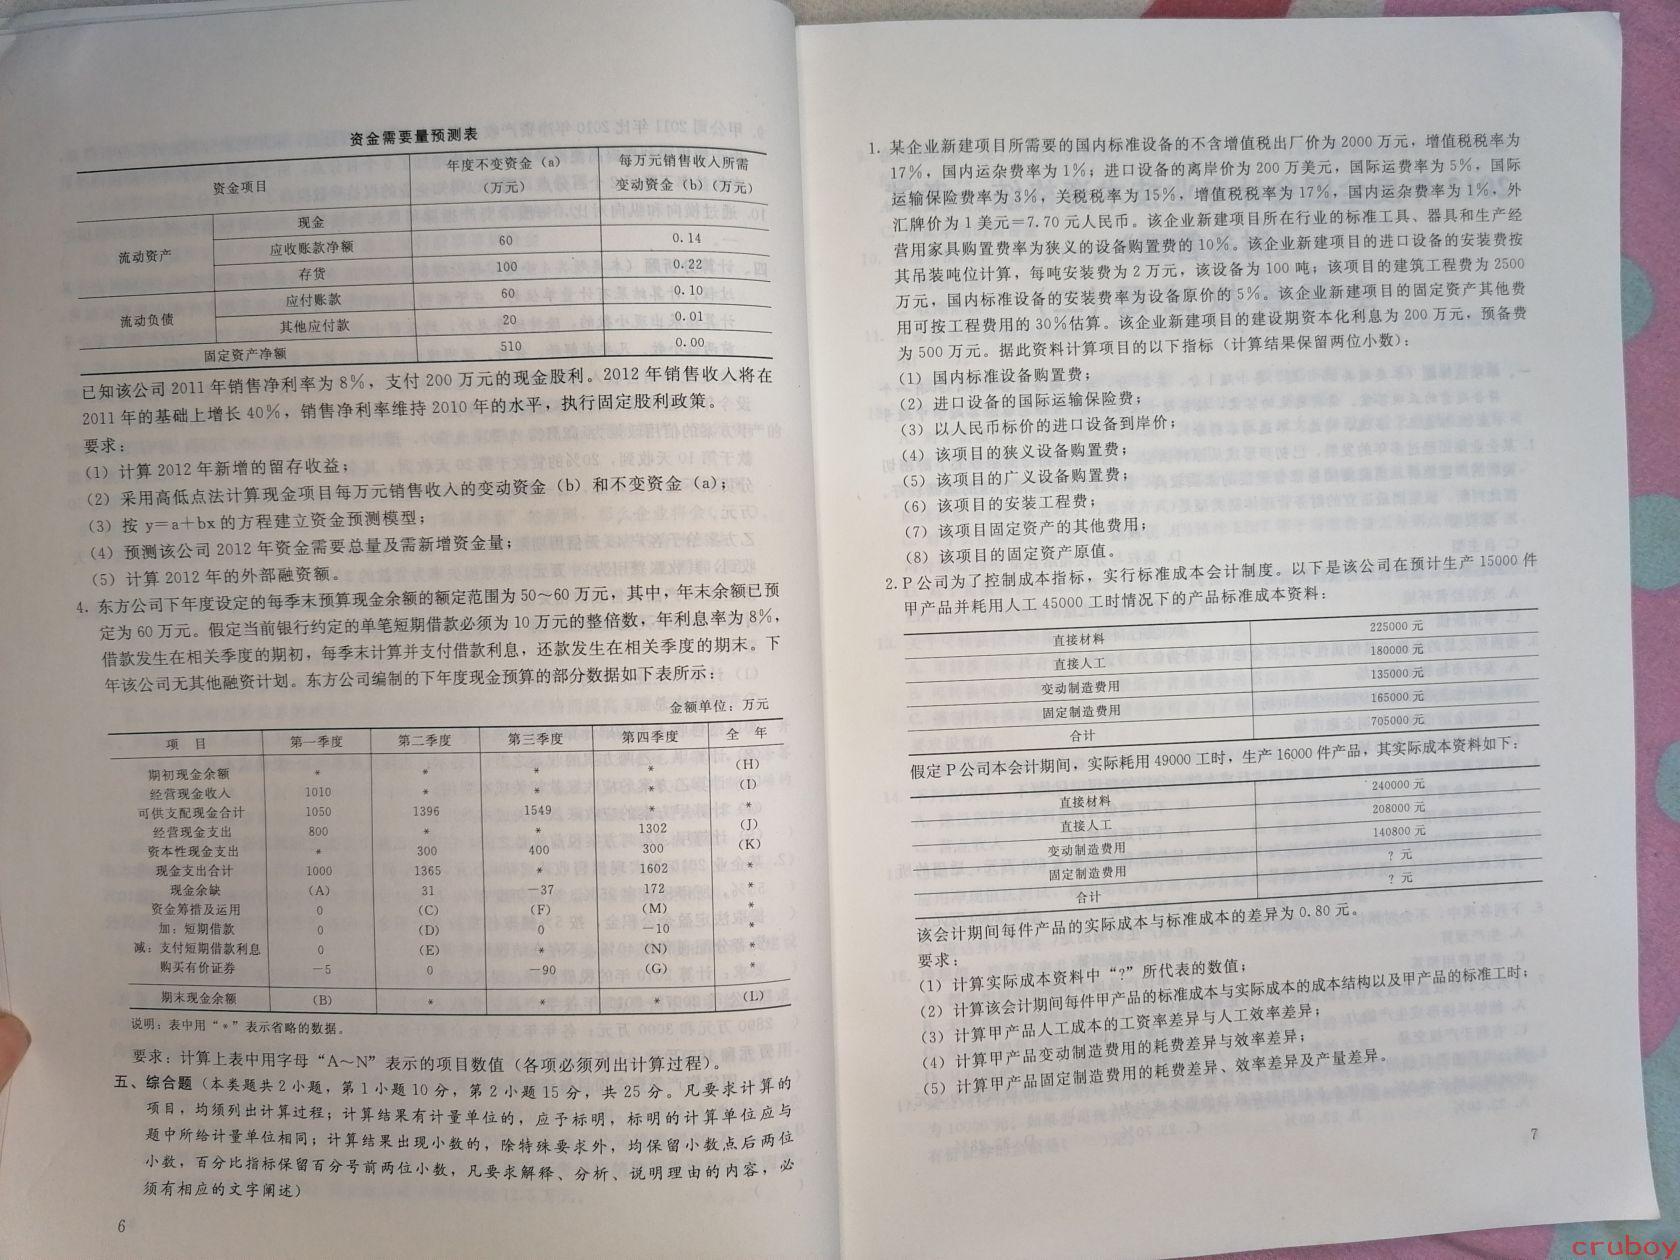 资金需要量预测表
资金项目 年度不变资金（a）（万元） 每万元销售收入所需变动资金（b）（万元）
流动资产 现金
应收账款净额 60 0.14
存货 100 0.22
流动负债 应付账款 60 0.10
其他应付款 20 0.01
固定资产净额 510 0.00
已知该公司 2011 年销售净利率为 8%，支付 200 万元的现金股利。2012 年销售收入将在
2011 年的基础上增长 40%，销售净利率维持 2010 年的水平，执行固定股利政策。
要求：
（1）计算 2012 年新增的留存收益；
（2）采用高低点法计算现金项目每万元销售收入的变动资金（b）和不变资金（a）；
（3）按 y＝a＋bx 的方程建立资金预测模型；
（4）预测该公司 2012 年资金需要总量及需新增资金量；
（5）计算 2012 年的外部融资额。
4. 东方公司下年度设定的每季末预算现金余额的额定范围为 50～60 万元，其中，年末余额已预
定为 60 万元。假定当前银行约定的单笔短期借款必须为 10 万元的整倍数，年利息率为 8%，
借款发生在相关季度的期初，每季末计算并支付借款利息，还款发生在相关季度的期末。下
年该公司无其他融资计划。东方公司编制的下年度现金预算的部分数据如下表所示：
金额单位：万元
项 目 第一季度 第二季度 第三季度 第四季度 全 年
期初现金余额 * * * * （H）
经营现金收入 1010 * * * （I）
可供支配现金合计 1050 1396 1549 * *
经营现金支出 800 * * 1302 （J）
资本性现金支出 * 300 400 300 （K）
现金支出合计 1000 1365 * 1602 *
现金余缺 （A） 31 －37 172 *
资金筹措及运用 0 （C） （F） （M） *
加：短期借款 0 （D） 0 －10 *
减：支付短期借款利息 0 （E） * （N） *
购买有价证券 －5 0 －90 （G） *
期末现金余额 （B） * * * （L）
说明：表中用“*”表示省略的数据。
要求：计算上表中用字母“A～N”表示的项目数值（各项必须列出计算过程）。
五、综合题（本类题共 2 小题，第 1 小题 10 分，第 2 小题 15 分，共 25 分。凡要求计算的
项目，均须列出计算过程；计算结果有计量单位的，应予标明，标明的计算单位应与
题中所给计量单位相同；计算结果出现小数的，除特殊要求外，均保留小数点后两位
小数，百分比指标保留百分号前两位小数，凡要求解释、分析、说明理由的内容，必
须有相应的文字阐述）
6
1. 某企业新建项目所需要的国内标准设备的不含增值税出厂价为 2000 万元，增值税税率为
17%，国内运杂费率为 1%；进口设备的离岸价为 200 万美元，国际运费率为 5%，国际
运输保险费率为 3%，关税税率为 15%，增值税税率为 17%，国内运杂费率为 1%，外
汇牌价为 1 美元＝7.70 元人民币。该企业新建项目所在行业的标准工具、器具和生产经
营用家具购置费率为狭义的设备购置费的 10%。该企业新建项目的进口设备的安装费按
其吊装吨位计算，每吨安装费为 2 万元，该设备为 100 吨；该项目的建筑工程费为 2500
万元，国内标准设备的安装费率为设备原价的 5%。该企业新建项目的固定资产其他费
用可按工程费用的 30%估算。该企业新建项目的建设期资本化利息为 200 万元，预备费
为 500 万元。据此资料计算项目的以下指标（计算结果保留两位小数）：
（1）国内标准设备购置费；
（2）进口设备的国际运输保险费；
（3）以人民币标价的进口设备到岸价；
（4）该项目的狭义设备购置费；
（5）该项目的广义设备购置费；
（6）该项目的安装工程费；
（7）该项目固定资产的其他费用；
（8）该项目的固定资产原值。
2. P 公司为了控制成本指标，实行标准成本会计制度。以下是该公司在预计生产 15000 件
甲产品并耗用人工 45000 工时情况下的产品标准成本资料：
直接材料 225000 元
直接人工 180000 元
变动制造费用 135000 元
固定制造费用 165000 元
合计 705000 元
假定 P 公司本会计期间，实际耗用 49000 工时，生产 16000 件产品，其实际成本资料如下：
直接材料 240000 元
直接人工 208000 元
变动制造费用 140800 元
固定制造费用 ？元
合计 ？元
该会计期间每件产品的实际成本与标准成本的差异为 0.80 元。
要求：
（1）计算实际成本资料中“?”所代表的数值；
（2）计算该会计期间每件甲产品的标准成本与实际成本的成本结构以及甲产品的标准工时；
（3）计算甲产品人工成本的工资率差异与人工效率差异；
（4）计算甲产品变动制造费用的耗费差异与效率差异；
（5）计算甲产品固定制造费用的耗费差异、效率差异及产量差异。
7
cruboy